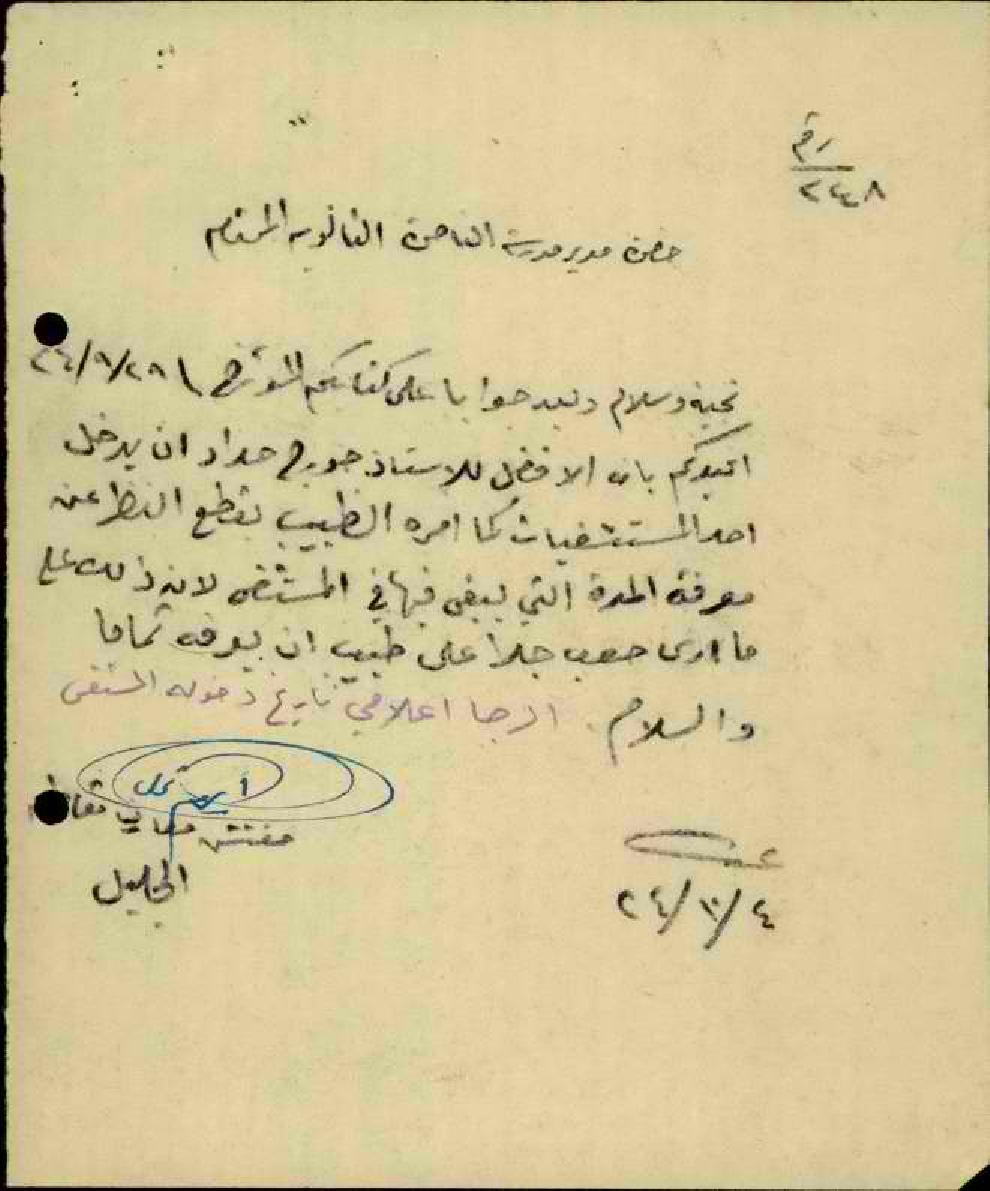 رقم
٢٢٤٨
حضرة مدير مدرسة الناصرة الثانوية المحترم
تحية وسلام وبعد جوابا على كتابكم المؤرخ ٢٤/٩/٢٨
افيدكم بان الافضل للاستاذ جورج حداد ان يدخل
احد المستشفيات كما امره الطبيب بقطع النظر عن
معرفة المدة التي يبقى فيها في المستشفى لانه ذلك على
ما ارى صعب جدا على طبيب ان يعرفه تماما
والسلام. الرجا اعلامي تاريخ دخوله المستشفى
مفتش معارف مقاطعة
الجليل
٢٤/١٠/٤